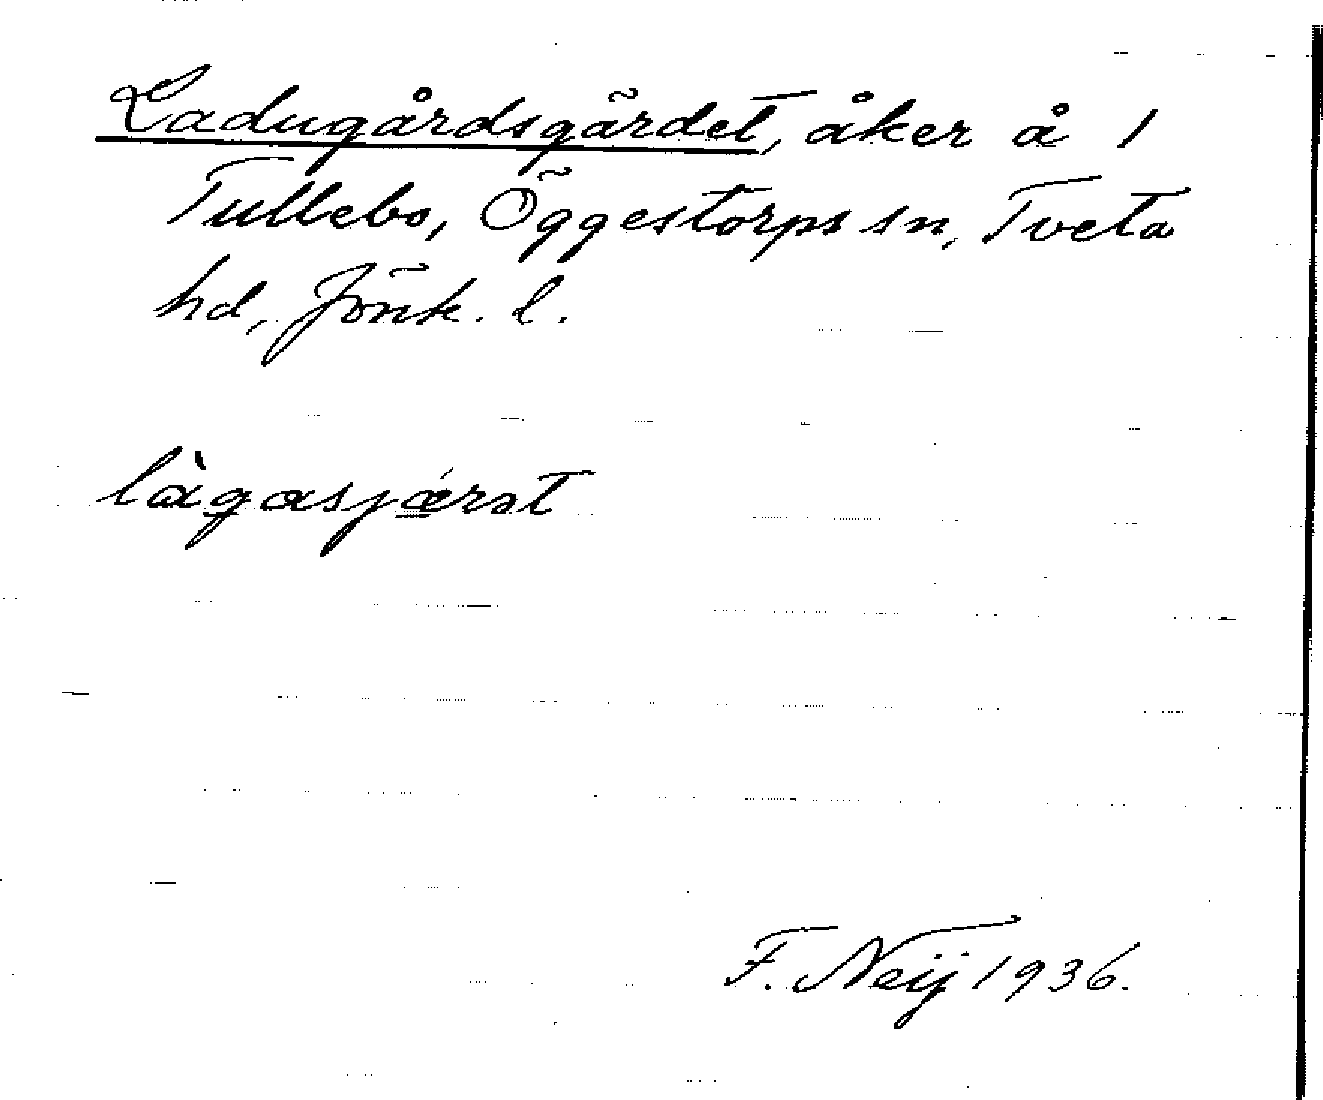 Ladugårdsgärdet, åker å 1
Tullebo, Öggestorps sn, Tveta
hd, Jönk. l.
làgasjǽrət
F. Neij 1936.